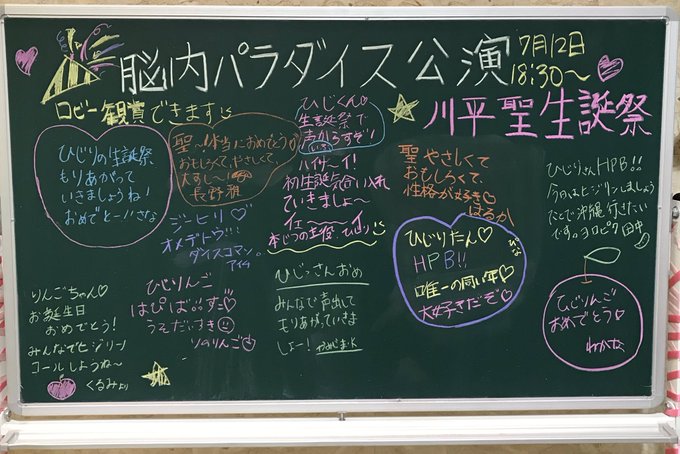 脳内パラダイス公演
7月12日
18:30〜
ロビー観賞できます
川平聖生誕祭
ひじりの生誕祭
もりあがって
いきましょうね!
おめでとー!! さな
聖〜!本当におめでとう♡
おもしろくてやさしくて、
大すし〜!
長野雅
ひじくん♡
生誕祭で
声かるすぞ!
ハイサーイ!
初生誕気合い入れ
ていきましょ〜
イェ〜〜〜イ
本じつの主役、ひじり
聖やさしくて
おもしろくて、
性格が好き♡
はるか
ひじりさんHPB!!
今日はヒジリンしましょう
てことで沖縄行きたい
です。ヨロピク 田中
ジーヒリ♡
オメデトウ!!
ダイスコマン。
アイリ
ひじりたん♡
HPB!!
唯一の同い年♡
大好きだぞ♡
りんごちゃん♡
お誕生日
おめでとう!
みんなでヒジリン!
コールしようね〜
くるみより
ひじりんご
はぴば。。すこ♡
うそだいすき
りのりんご
ひじっさんおめ
みんなで声出して
もりあがっていきま
しょー!
ひじりんご
おめでとう♡
わかな